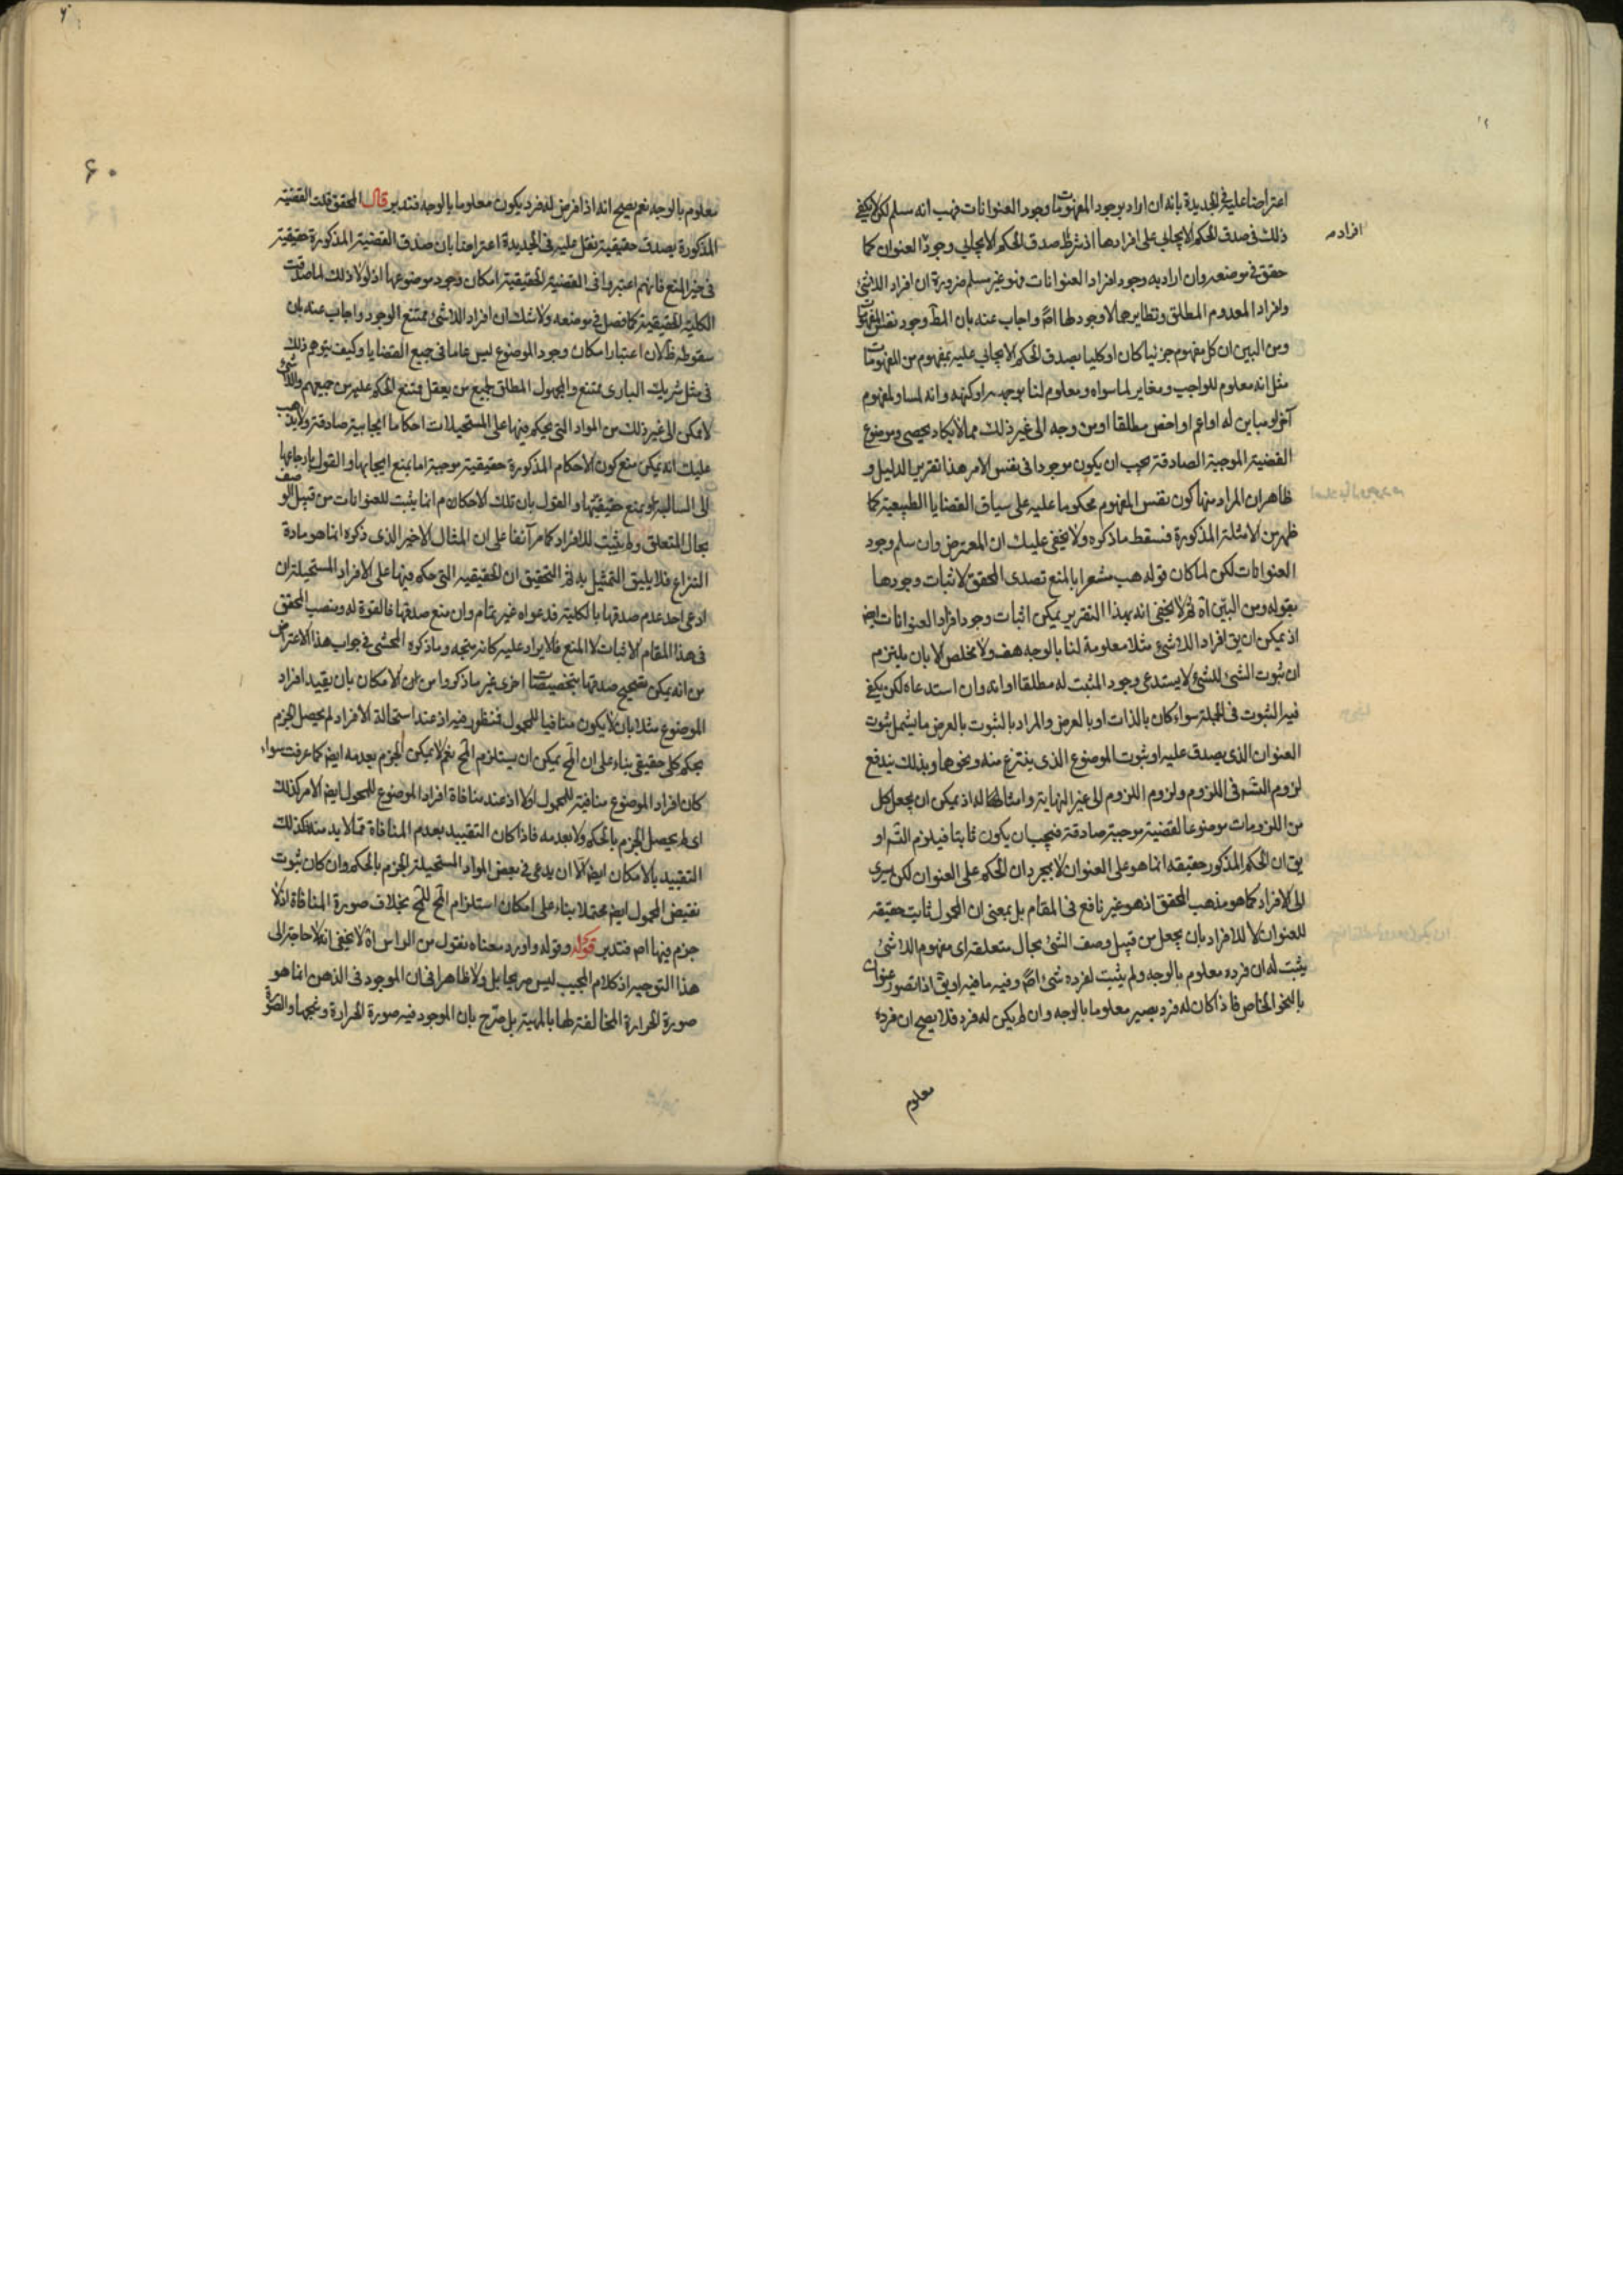 اعتراضا عليه فى الجديدة بانه ان اراد بوجود المفهومات وجود العنوانات فهب انه مسلم لكن لا يكفى
ذلك فى صدق الحكم الايجابى على افرادها اذ شرط صدق الحكم الايجابى وجود العنوان كما
افراده
حقق فى موضعه وان اراد به وجود افراد العنوانات فهو غير مسلم ضرورة ان افراد اللاشئ
وافراد المعدوم المطلق ونظايرهما لا وجود لها اصلا واجاب عنه بان المراد وجود نفس المفهومات
ومن البين ان كل مفهوم جزئيا كان او كليا يصدق الحكم الايجابى عليه بمفهوم من المفهومات
مثل انه معلوم للواجب ومغاير لما سواه ومعلوم لنا بوجهه او كنهه وانه مساو لمفهوم
آخر او مباين له او اعم او اخص مطلقا او من وجه الى غير ذلك مما لا يكاد يحصى وموضوع
القضية الموجبة الصادقة يجب ان يكون موجودا فى نفس الامر هذا تقرير الدليل و
ظاهر ان المراد منها كون نفس المفهوم محكوما عليه على سياق القضايا الطبيعية كما
ظهر من الامثلة المذكورة فسقط ما ذكره ولا يخفى عليك ان المعترض وان سلم وجود
العنوانات لكن لما كان قوله هب مشعرا بالمنع تصدى المحقق لاثبات وجودها
بقوله ومن البين آه ثم لا يخفى انه بهذا التقرير يمكن اثبات وجود افراد العنوانات ايض
اذ يمكن ان يق افراد اللاشئ مثلا معلومة لنا بالوجه هف ولا مخلص الا بان يلتزم
ان ثبوت الشئ للشئ لا يستدعى وجود المثبت له مطلقا او انه وان استدعاه لكن يكفى
فيه الثبوت فى الجملة سواء كان بالذات او بالعرض والمراد بالثبوت بالعرض ما يشمل ثبوت
العنوان الذى يصدق عليه او ثبوت الموضوع الذى ينتزع منه ونحوها وبذلك يندفع
لزوم التس فى اللزوم ولزوم اللزوم الى غير النهاية وامثالها له اذ يمكن ان يجعل كل
من اللزومات موضوعا لقضية موجبة صادقة فيجب ان يكون ثابتا فيلزم التس او
يق ان الحكم المذكور حقيقه انما هو على العنوان لا بمجرد ان الحكم على العنوان لكن يسرى
الى الافراد كما هو مذهب المحقق اذ هو غير نافع فى المقام بل بمعنى ان المحمول ثابت حقيقه
للعنوان لا للافراد بان يجعل من قبيل وصف الشئ بحال متعلقه اى مفهوم اللاشئ
يثبت له ان فرده معلوم بالوجه ولم يثبت لفرده شئ اصلا وفيه ما فيه او يق اذا تصور عنوان
بالنحو الخاص فاذا كان له فرد يصير معلوما بالوجه وان لم يكن له فرد فلا يصح ان فرده
معلوم
۶۰
معلوم بالوجه نعم يصح انه اذا فرض له فرد يكون معلوما بالوجه فتدبر قال المحقق قلت القضية
المذكورة يصدق حقيقية نقل عليه فى الجديدة اعتراضا بان صدق القضية المذكورة حقيقية
فى حيز المنع فانهم اعتبروا فى القضية الحقيقية امكان وجود موضوعها اذ لولا ذلك لما صدقت
الكلية الحقيقية كما فصل فى موضعه ولا شك ان افراد اللاشئ ممتنع الوجود واجاب عنه بان
سقوطه ظ لان اعتبار امكان وجود الموضوع ليس عاما فى جميع القضايا وكيف يتوهم ذلك
فى مثل شريك البارى ممتنع والمجهول المطلق لجميع من يعقل يمتنع الحكم عليه من جميعهم واللاشئ
لا يمكن الى غير ذلك من المواد التى يحكم فيها على المستحيلات احكاما ايجابية صادقة ولا يذهب
عليك انه يمكن منع كون الاحكام المذكورة حقيقية موجبة اما بمنع ايجابها والقول بارجاعها
الى السالبة او بمنع حقيقيتها والقول بان تلك الاحكام انما يثبت للعنوانات من قبيل الوصف
بحال المتعلق ولم يثبت للافراد كما مر آنفا على ان المثال الاخير الذى ذكره انما هو مادة
النزاع فلا يليق التمثيل به ثم التحقيق ان الحقيقيه التى حكم فيها على الافراد المستحيلة ان
ادعى احد عدم صدقها بالكلية فدعواه غير تمام وان منع صدقها فالقوة له ومنصب المحقق
فى هذا المقام الاثبات لا المنع فالايراد عليه كانه متجه وما ذكره المحشى فى جواب هذا الاعتراض
من انه يمكن تصحيح صدقها بتخصيصات اخرى غير ما ذكروا من الامكان بان يقيد افراد
الموضوع مثلا بان لا يكون منافيا للمحمول فمنظور فيه اذ عند استحالة الافراد لم يحصل الجزم
بحكم كلى حقيقى بناء على ان المح يمكن ان يستلزم المح نعم لا يمكن الجزم بعدمه ايض كما عرفت سواء
كان افراد الموضوع منافية للمحمول او لا اذ عند منافاة افراد الموضوع للمحمول ايض الامر كذلك
اى لم يحصل الجزم بالحكم ولا بعدمه فاذا كان التقييد بعدم المنافاة مما لا بد منه فكذلك
التقييد بالامكان ايض الا ان يدعى فى بعض المواد المستحيلة الجزم بالحكم وان كان ثبوت
نقيض المحمول ايض محتملا بناء على امكان استلزام المح للمح بخلاف صورة المنافاة اذ لا
جزم فيها اصلا فتدبر قوله وقوله واورد معناه نقول من الراس آه لا يخفى انه لا حاجة الى
هذا التوجيه اذ كلام المجيب ليس صريحا بل ولا ظاهرا فى ان الموجود فى الذهن انما هو
صورة الحرارة المخالفة لها بالمهية بل صرح بان الموجود فيه صورة الحرارة ونحوها والصورة